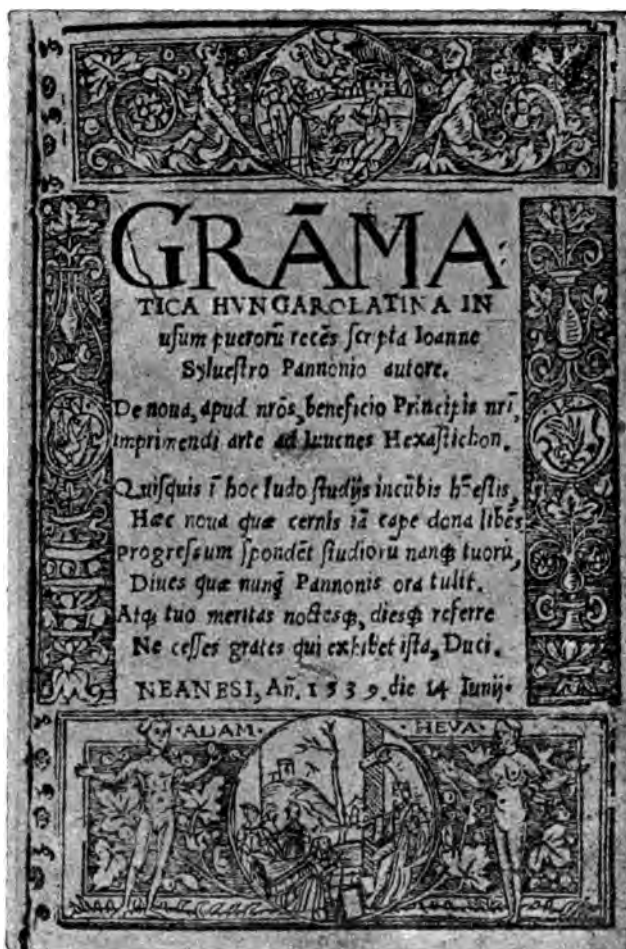 GRĀMA
TICA HVNGAROLATINA IN
uſum puerorū recēs ſcripta Ioanne
Sylueſtro Pannonio autore.
De noua, apud nrōs, beneficio Principis nrī,
imprimendi arte ad Iuuenes Hexaſtichon.
Quiſquis ī hoc ludo ſtudijs incūbis hēſtis,
Hæc noua quæ cernis iā cape dona libēs
progreſſum ſpondēt ſtudiorū nanꝗ tuorū,
Diues quæ nunꝗ̄ Pannonis ora tulit.
Atꝗ tuo meritas noctesꝗ, diesꝗ referre
Ne ceſſes grates qui exhibet iſta, Duci.
NEANESI, Añ. 1539. die 14 Iunij.
·ADAM· ·HEVA·